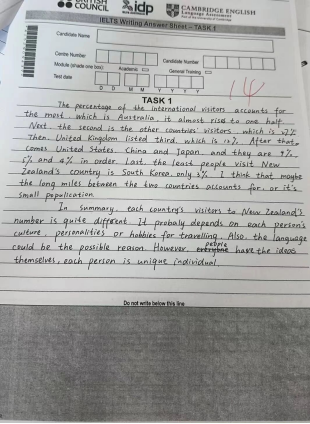 BRITISH COUNCIL
idp
CAMBRIDGE ENGLISH
Language Assessment
Part of the University of Cambridge
IELTS Writing Answer Sheet - TASK 1
Candidate Name
Centre Number
Candidate Number
Module (shade one box): Academic General Training
Test date
D D M M Y Y Y Y
14
TASK 1
The percentage of the international visitors accounts for
the most, which is Australia, it almost rise to one half
Next, the second is the other countries' visitors, which is 27%
Then, United Kingdom listed third, which is 12%. After that,
comes United States, China and Japan, and they are 9%,
5% and 4% in order. Last, the least people visit New
Zealand's country is South Korea, only 3%. I think that maybe
the long miles between the two countries accounts for, or it's
small population.
In summary, each country's visitors to New Zealand's
number is quite different. It probaly depends on each person's
culture, personalities or hobbies for travelling. Also, the language
could be the possible reason. However, people have the ideas
themselves, each person is unique individual.
Do not write below this line